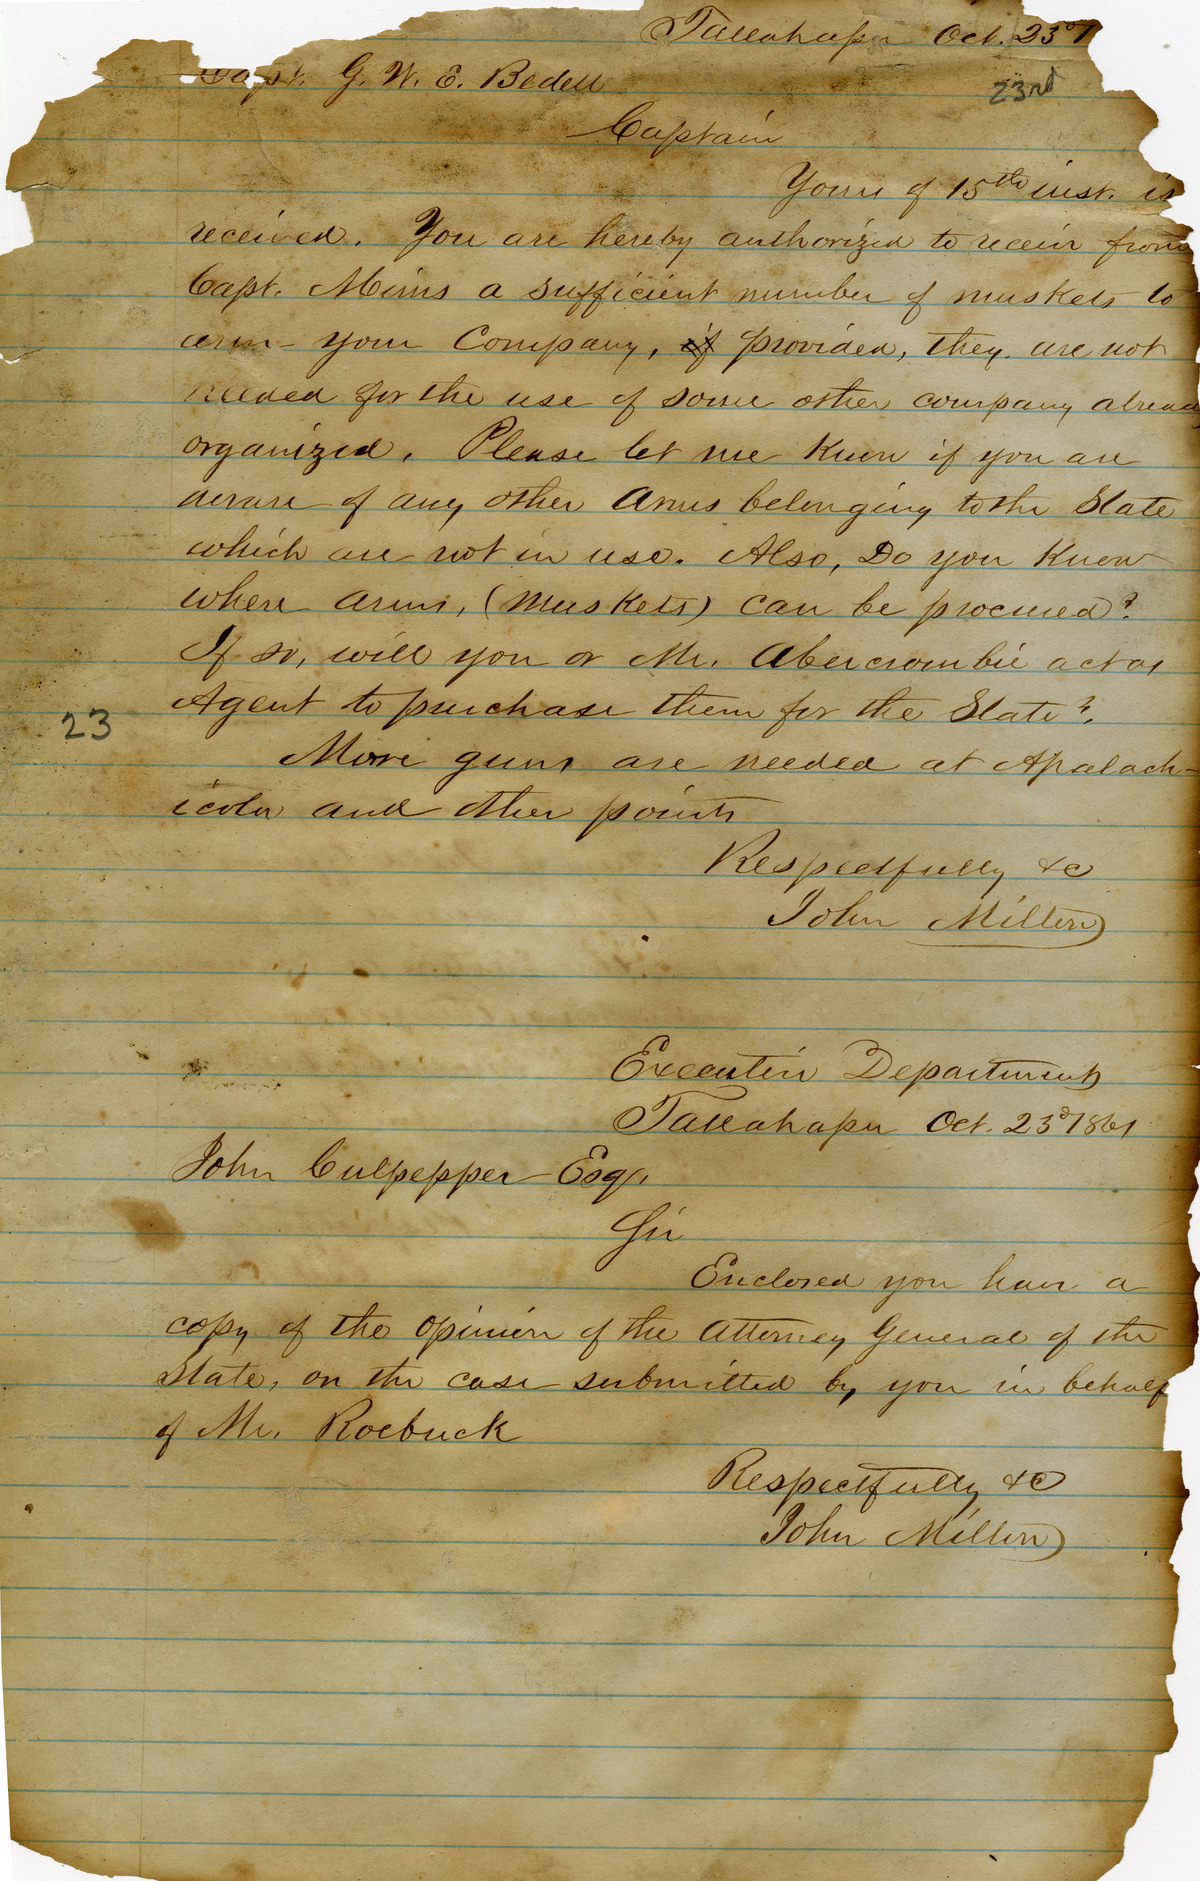 Tallahassee Oct. 23d 1
Capt. G. W. E. Bedell
23rd
Captain
Yours of 15th inst. is
received. You are hereby authorized to receive from
Capt. Mims a sufficient number of muskets to
arm your Company, if provided, they are not
needed for the use of some other company already
organized. Please let me know if you are
aware of any other Arms belonging to the State
which are not in use. Also, Do you Know
where arms, (Muskets) can be procured?
If so, will you or Mr. Abercrombie act as
Agent to purchase them for the State?
23
More guns are needed at Apalach-
icola and other points
Respectfully &c
John Milton
Executive Department
Tallahassee Oct. 23d 1861
John Culpepper Esq.
Sir
Enclosed you have a
copy of the opinion of the Attorney General of the
State, on the case submitted by you in behalf
of Mr. Roebuck
Respectfully &c
John Milton